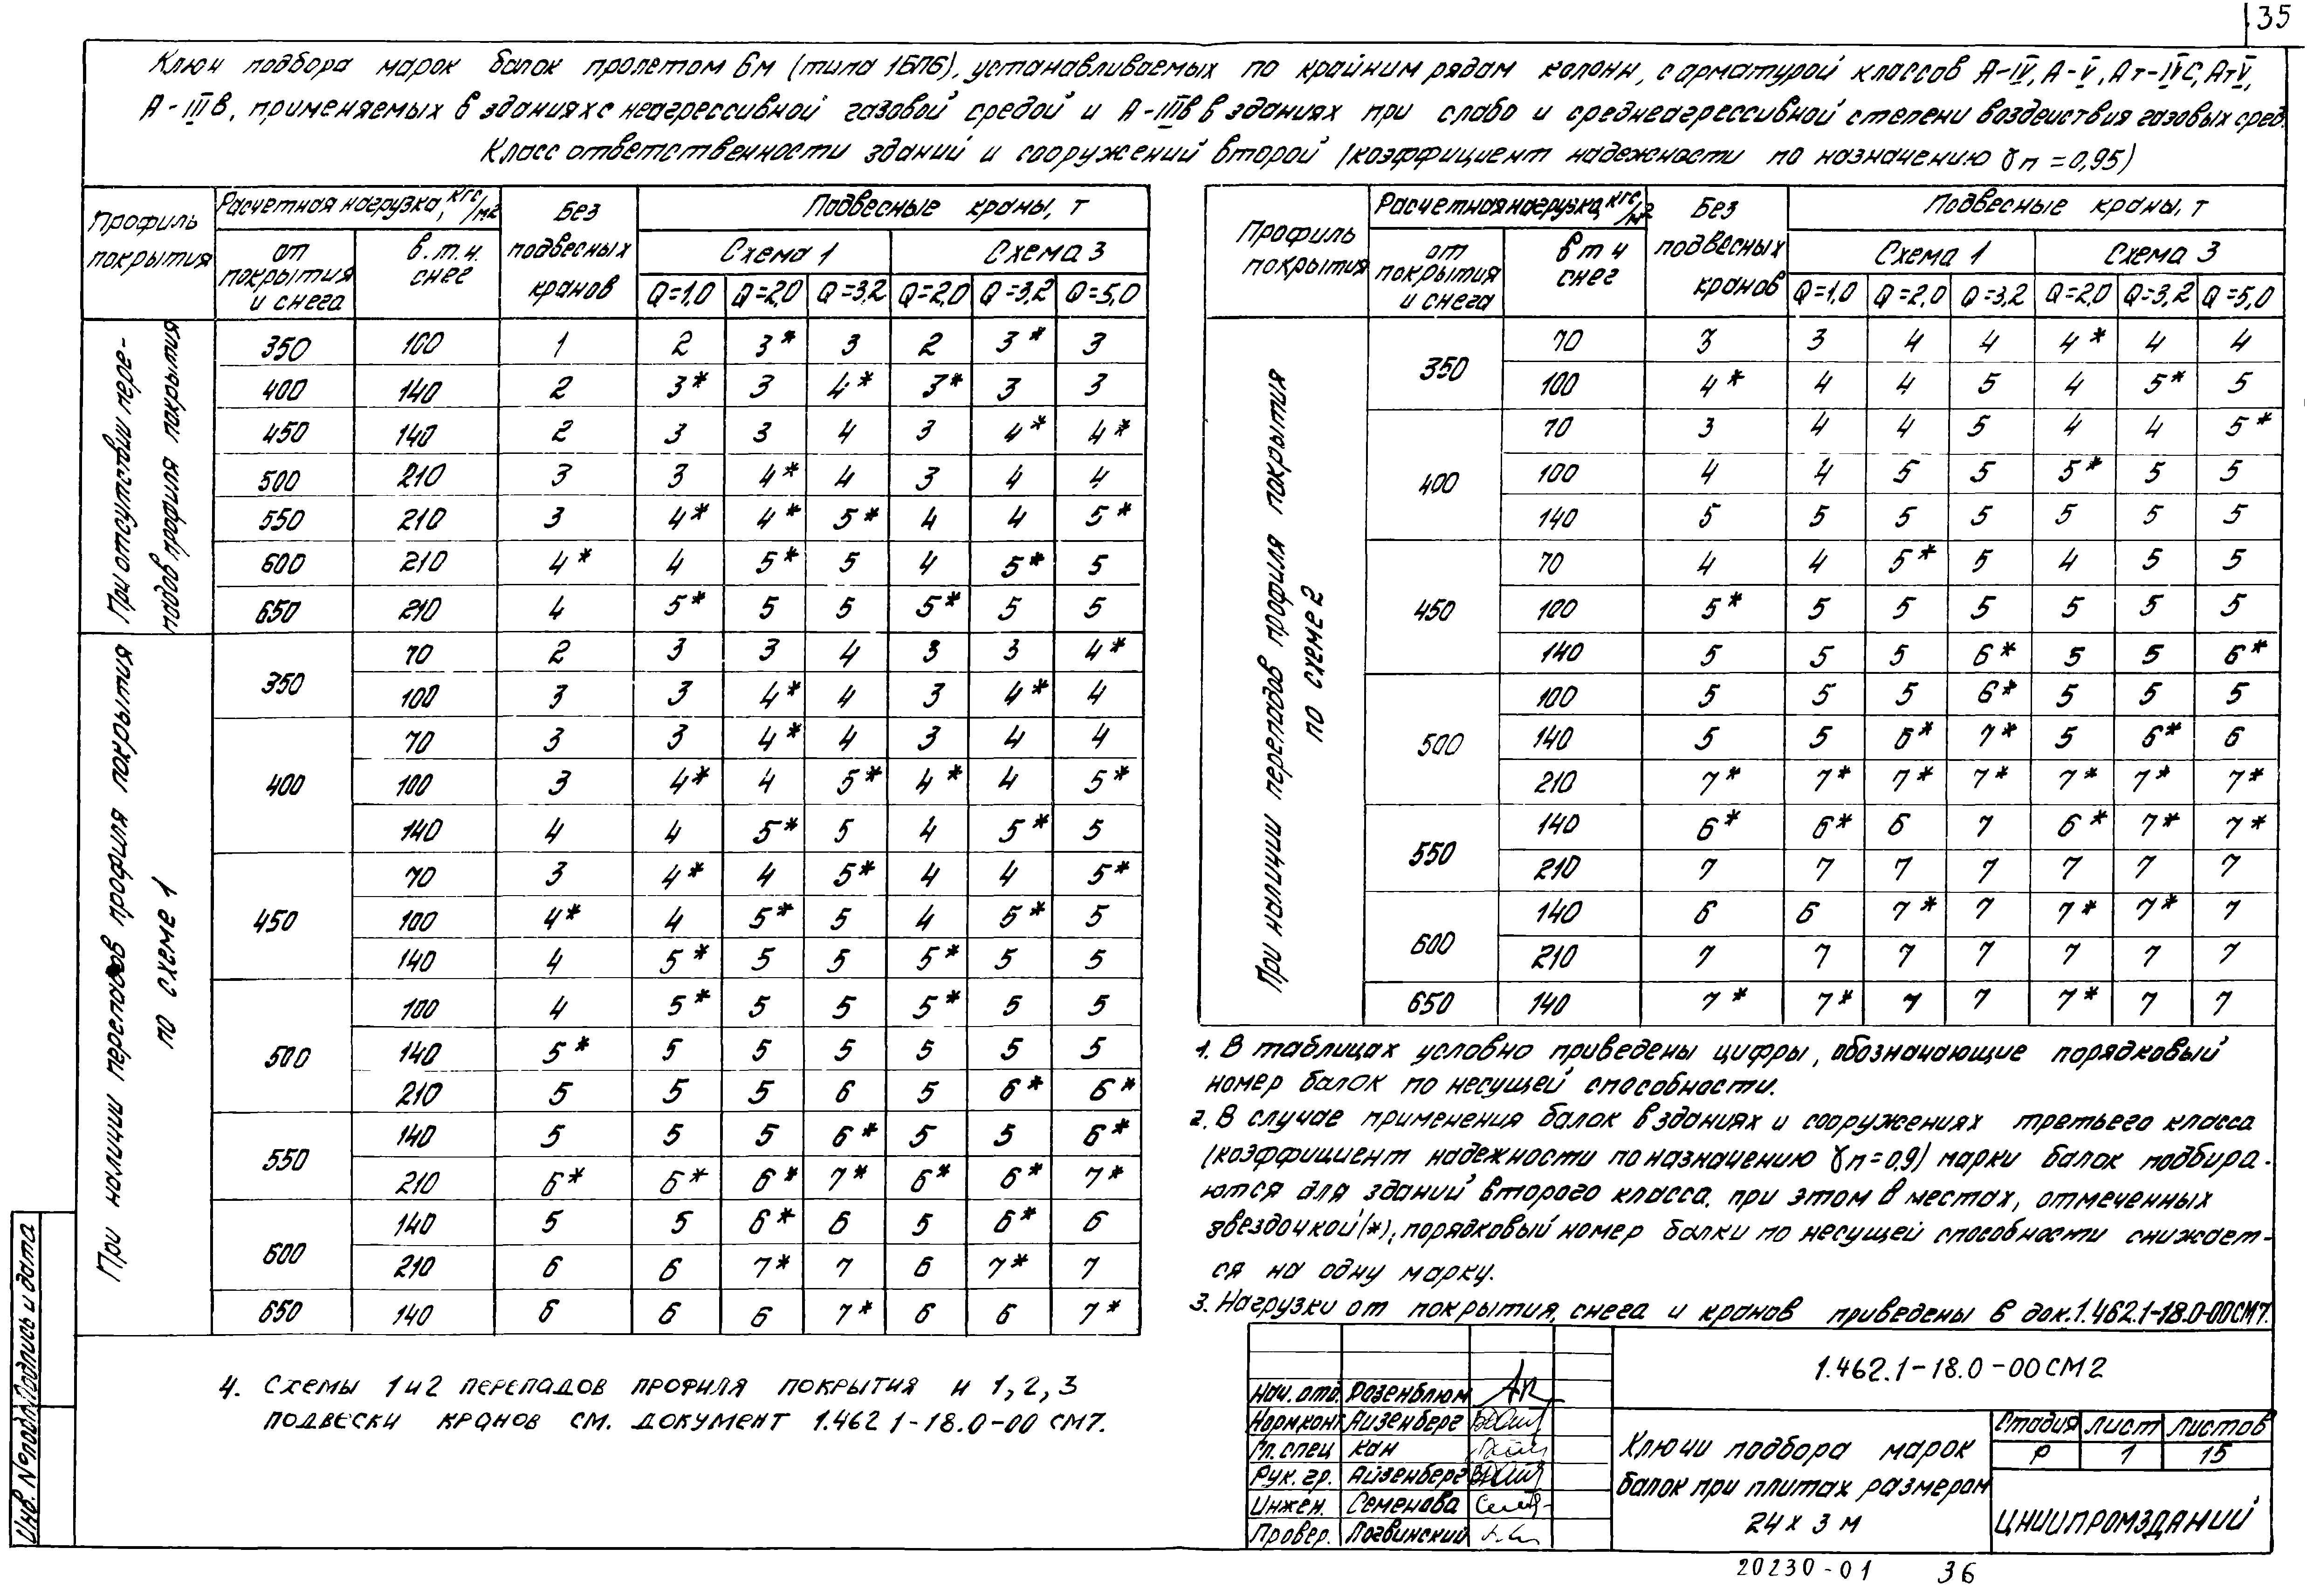 35
Ключ подбора марок балок пролетом 6м (типа 1БП6), устанавливаемых по крайним рядам колонн, с арматурой классов А-IV, А-V, Ат-IVС, АтV,
А-IIIв, применяемых в зданиях с неагрессивной газовой средой и А-IIIв в зданиях при слабо и среднеагрессивной степени воздействия газовых сред.
Класс ответственности зданий и сооружений второй (коэффициент надежности по назначению γn =0,95)
Профиль покрытия | Расчетная нагрузка, кгс/м2 | Без подвесных кранов | Подвесные краны, т
от покрытия и снега | в.т.ч. снег | Схема 1 | Схема 3
Q=1,0 | Q=2,0 | Q=3,2 | Q=2,0 | Q=3,2 | Q=5,0
При отсутствии перепадов профиля покрытия
350 100 1 2 3* 3 2 3* 3
400 140 2 3* 3 4* 3* 3 3
450 140 2 3 3 4 3 4* 4*
500 210 3 3 4* 4 3 4 4
550 210 3 4* 4* 5* 4 4 5*
600 210 4* 4 5* 5 4 5* 5
650 210 4 5* 5 5 5* 5 5
При наличии перепадов профиля покрытия по схеме 1
350 70 2 3 3 4 3 3 4*
100 3 3 4* 4 3 4* 4
400 70 3 3 4* 4 3 4 4
100 3 4* 4 5* 4* 4 5*
140 4 4 5* 5 4 5* 5
450 70 3 4* 4 5* 4 4 5*
100 4* 4 5* 5 4 5* 5
140 4 5* 5 5 5* 5 5
500 100 4 5* 5 5 5* 5 5
140 5* 5 5 5 5 5 5
210 5 5 5 6 5 6* 6*
550 140 5 5 5 6* 5 5 6*
210 6* 6* 6* 7* 6* 6* 7*
600 140 5 5 6* 6 5 6* 6
210 6 6 7* 7 6 7* 7
650 140 6 6 6 7* 6 6 7*
Профиль покрытия | Расчетная нагрузка, кгс/м2 | Без подвесных кранов | Подвесные краны, т
от покрытия и снега | в т ч снег | Схема 1 | Схема 3
Q=1,0 | Q=2,0 | Q=3,2 | Q=2,0 | Q=3,2 | Q=5,0
При наличии перепадов профиля покрытия по схеме 2
350 70 3 3 4 4 4* 4 4
100 4* 4 4 5 4 5* 5
400 70 3 4 4 5 4 4 5*
100 4 4 5 5 5* 5 5
140 5 5 5 5 5 5 5
450 70 4 4 5* 5 4 5 5
100 5* 5 5 5 5 5 5
140 5 5 5 6* 5 5 6*
500 100 5 5 5 6* 5 5 5
140 5 5 6* 7* 5 6* 6
210 7* 7* 7* 7* 7* 7* 7*
550 140 6* 6* 6 7 6* 7* 7*
210 7 7 7 7 7 7 7
600 140 6 6 7* 7 7* 7* 7
210 7 7 7 7 7 7 7
650 140 7* 7* 7 7 7* 7 7
1. В таблицах условно приведены цифры, обозначающие порядковый
номер балок по несущей способности.
2. В случае применения балок в зданиях и сооружениях третьего класса
(коэффициент надежности по назначению γn=0,9) марки балок подбира-
ются для зданий второго класса, при этом в местах, отмеченных
звездочкой (*), порядковый номер балки по несущей способности снижает-
ся на одну марку.
3. Нагрузки от покрытия, снега и кранов приведены в док.1.462.1-18.0-00СМ7.
4. Схемы 1и2 перепадов профиля покрытия и 1,2,3
подвески кранов см. документ 1.462 1-18.0-00 СМ7.
Нач. отд Розенблюм
Нормконт Айзенберг
Гл. спец Кан
Рук. гр. Айзенберг
Инжен. Семенова
Провер. Логвинский
1.462.1-18.0-00СМ2
Ключи подбора марок
балок при плитах размером
24х3 м
Стадия Лист Листов
Р 1 15
ЦНИИПРОМЗДАНИЙ
Инв. №подл. Подпись и дата
20230-01 36